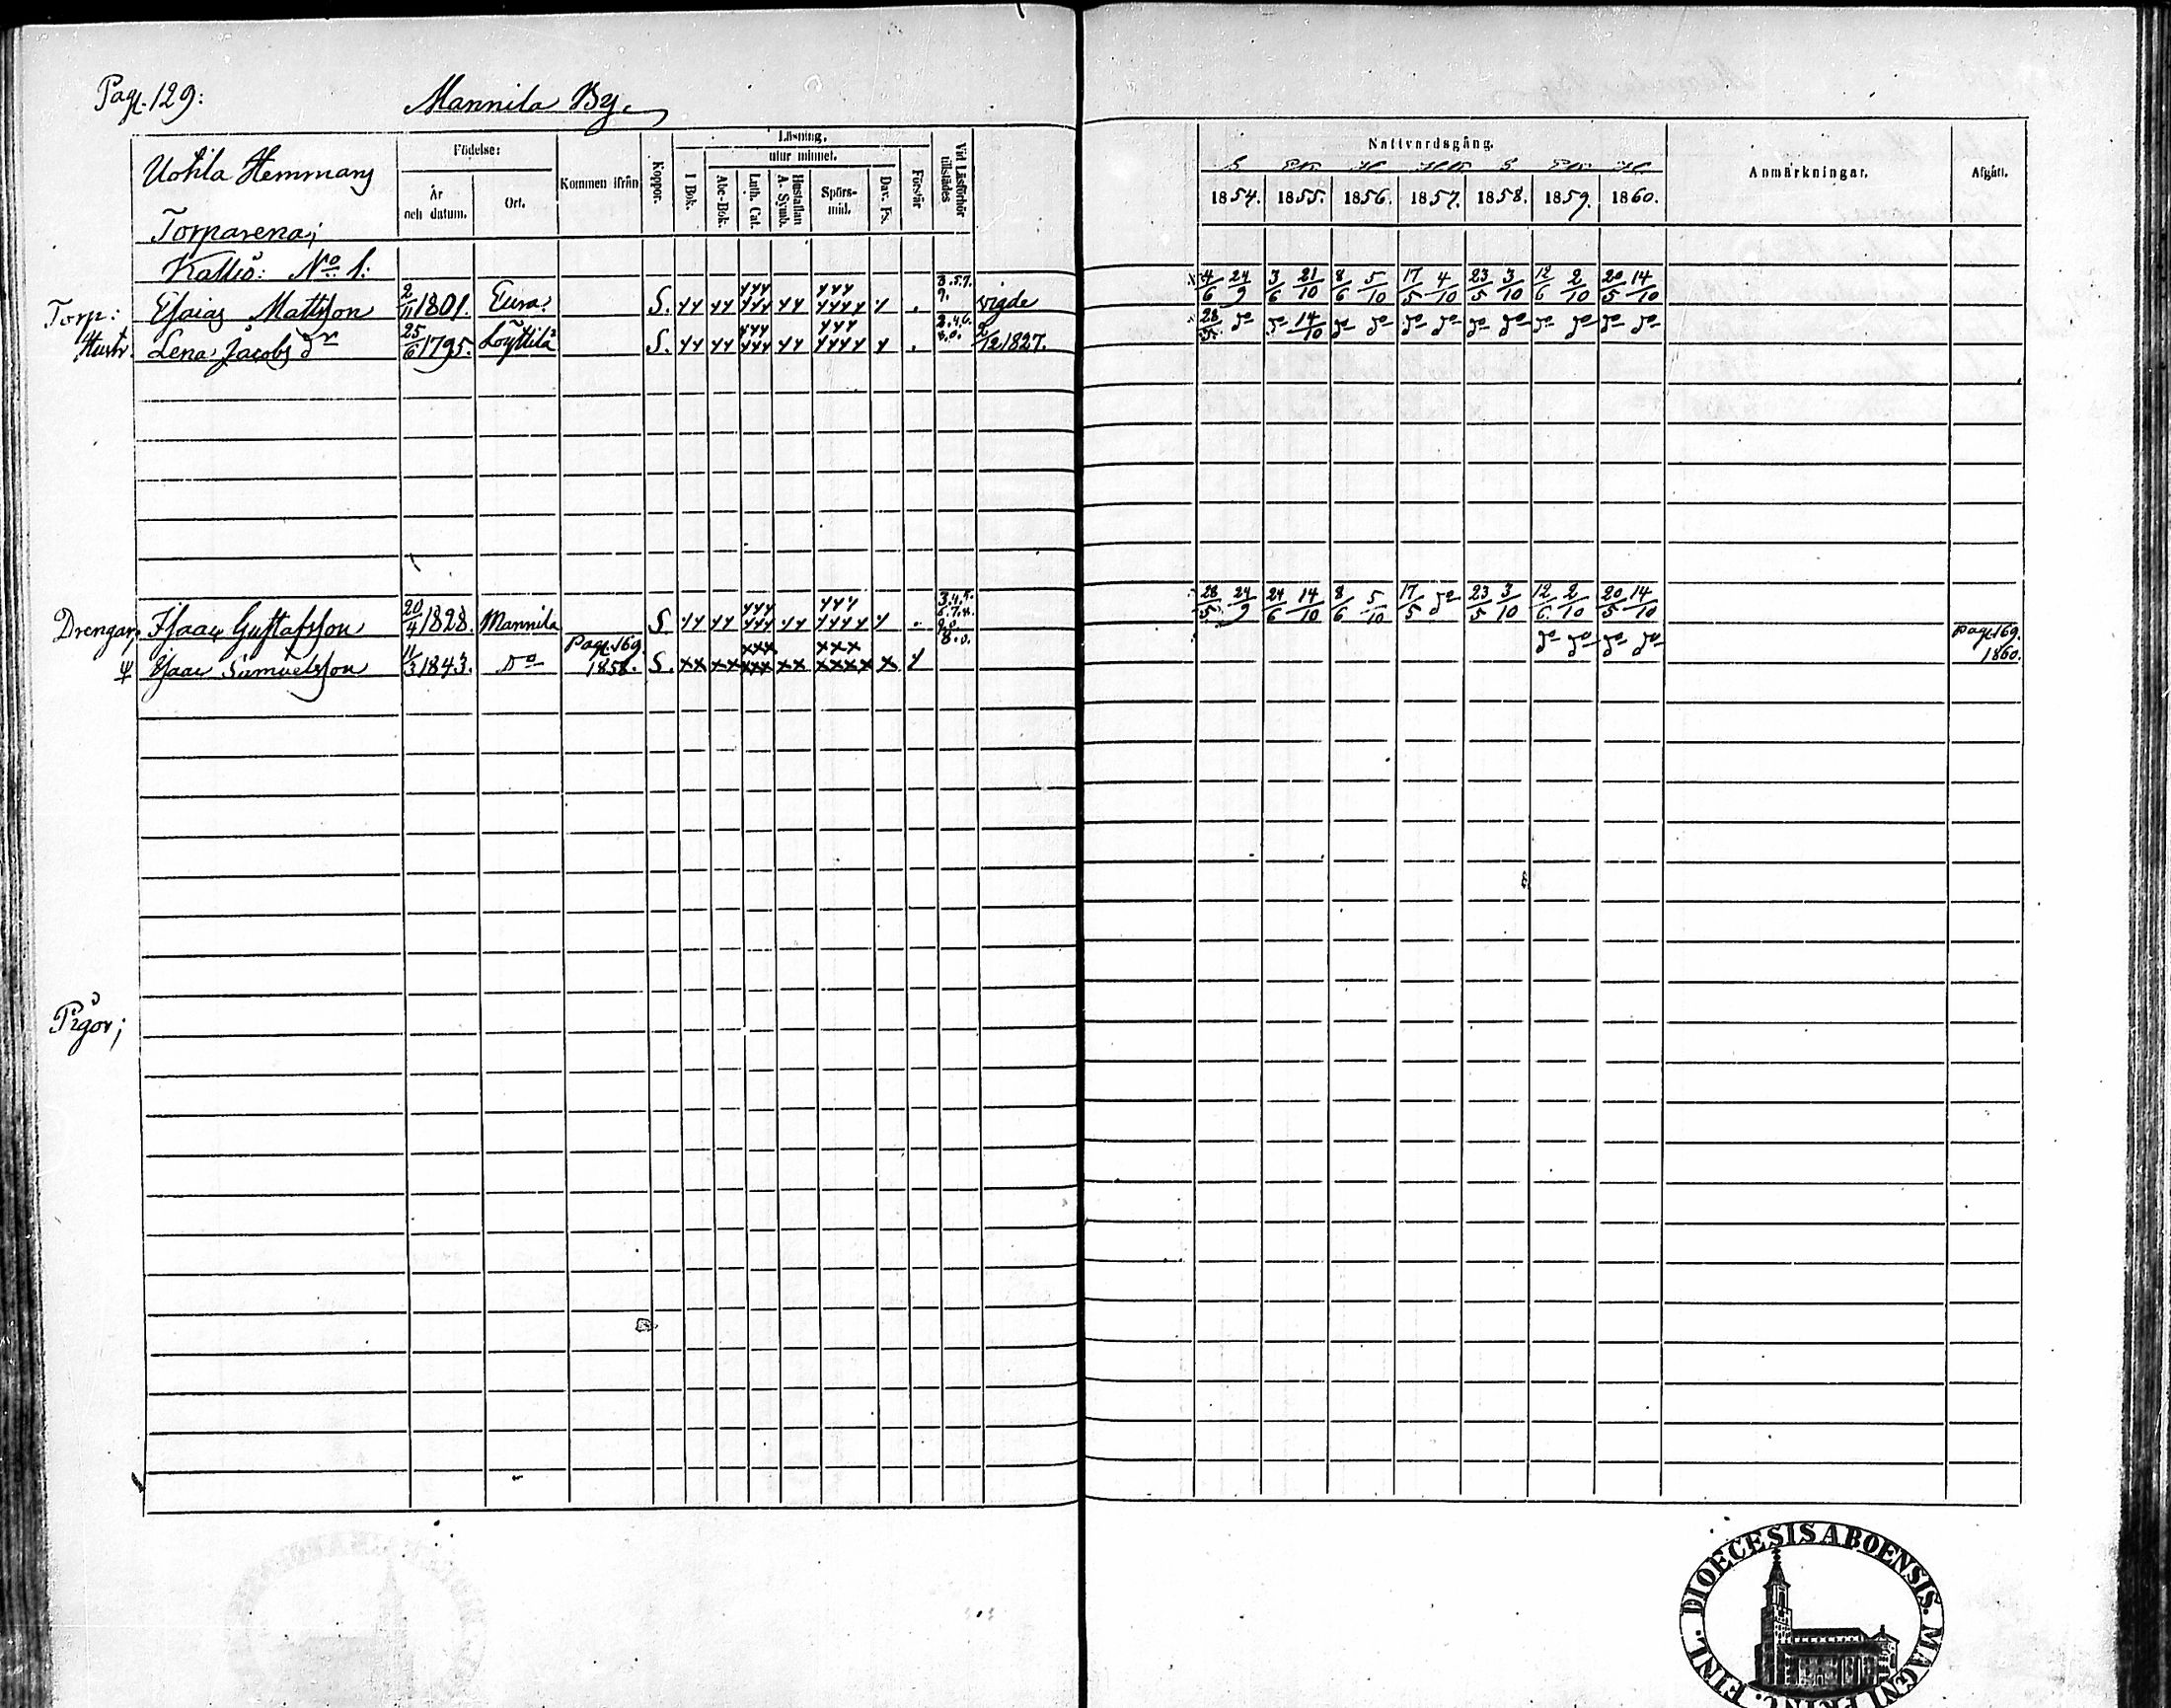 Pag. 129:
Mannila By.
Uotila Hemmans
Torparena;
Födelse:
År och datum.
Ort.
Kommen ifrån
Koppor.
Läsning,
I Bok.
utur minnet.
Abc-Bok.
Luth. Cat.
Hustaflan A. Symb.
Spörs-mål.
Dav. Ps.
Förstår
Vid Läsförhör tillstädes
Nattvardsgång.
1854. 1855. 1856. 1857. 1858. 1859. 1860.
Anmärkningar.
Afgått.
Kallio: No 1:
Torp: Esaias Mattsson 2/11 1801. Eura. S. 3.5.7. 9. vigde 4/6 24/9 3/6 21/10 8/6 5/10 17/5 4/10 23/5 3/10 12/6 2/10 20/5 14/10
Hustr. Lena Jacobs dr 25/6 1795. Löyttilä S. 2/12 1827. 28/5 do do 14/10 do do do do do do do do do do
Drengar Isaac Gustafsson 20/4 1828. Mannila S. 28/5 24/9 24/6 14/10 8/6 5/10 17/5 do 23/5 3/10 12/6 2/10 20/5 14/10
Isaac Samuelsson 11/3 1843. Do Pag. 169. 1858. S. 8.0. do do do do Pag. 169. 1860.
Pigor;
DIOECESIS ABOENSIS. MAGNI PRINC. FINL.